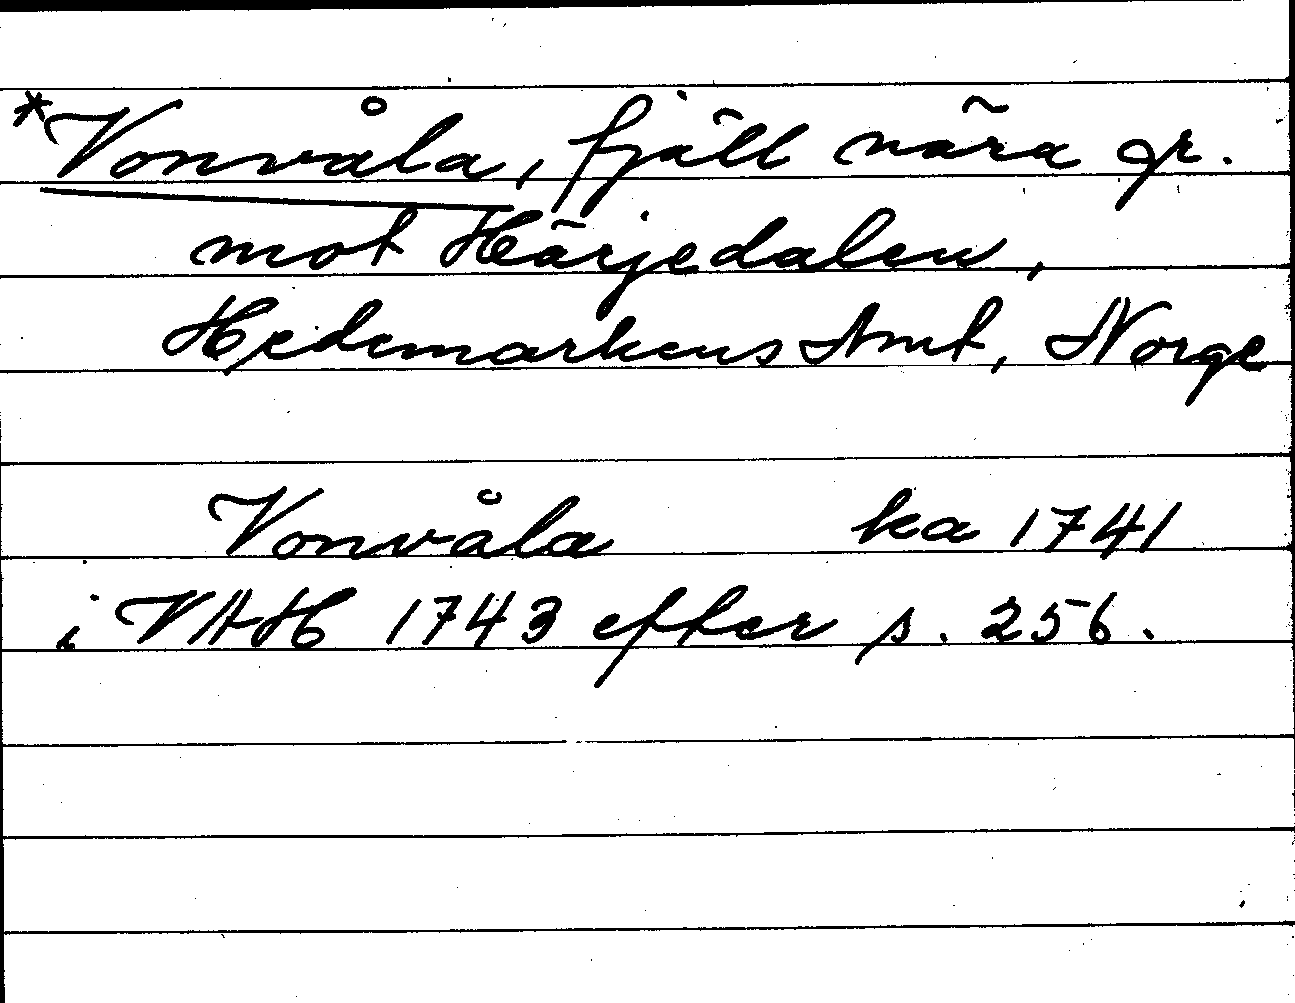 *Vonvåla, fjäll nära gr.
mot Härjedalen,
Hedemarkens Amt, Norge
Vonvåla ka 1741
i VAH 1743 efter s. 256.